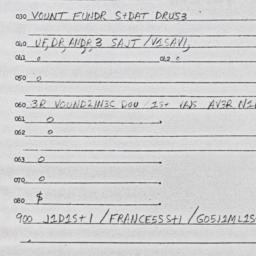 030 VOUNT FUNDR S+DAT DRUS3
040 VF, DR, ANDR, 3 SAJT / V1SAV1,
041 0 042 0
050 0
060 3R VOUND2IN3C DOU 1S+ VAS AV3R
061 0
062 0
063 0
070 0
080 $
900 J1D1S+1 / FRANCE5SS+1 / GO5J1ML1S